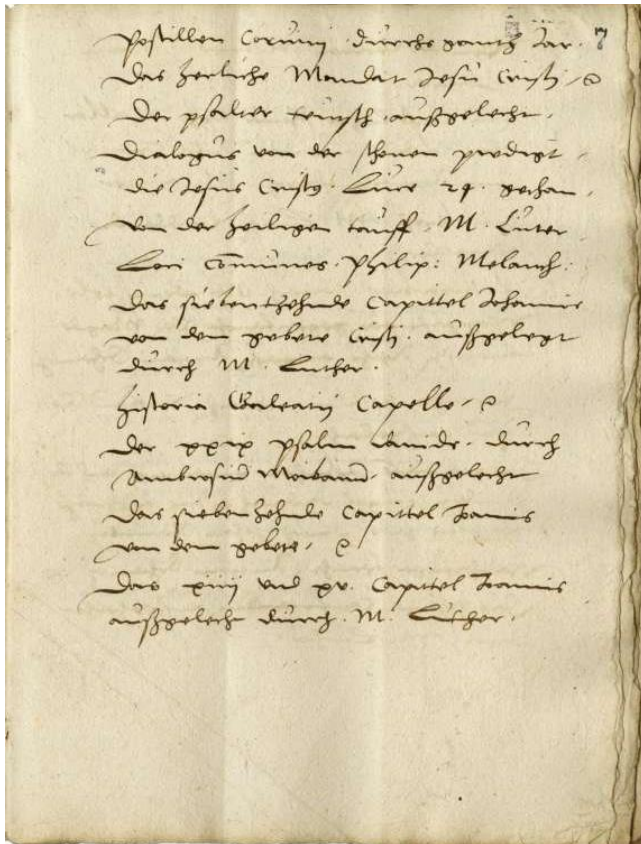 Postillen Corvinj durchs gantz Jar. 7
Das herliche Mandat Jesu Cristj, ꝛc
Der psalter teutsch außgelecht.
Dialogus von der schonen predigt,
die Jesus Cristus. Luce 24. gethan,
Von der heiligen tauff. M. Luter
Loci Com̄unes. Philip: Melanch:
Das siebentzehnde Capittel Johannis
von dem gebete Cristj. außgelegt
durch M. Luther.
Historia Galeatij Capelle, ꝛc
Der xxix psalm Davids. durch
Ambrosiū Moibanū. außgelecht
Das siebenzehnde Capittel Joannis
von dem gebete, ꝛc
Das xiiij vnd xv. Capittel Joannis
außgelecht durch. M. Luther.